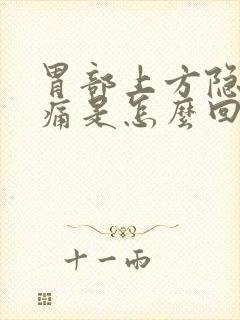 胃部上方隐
痛是怎麼回
十一雨